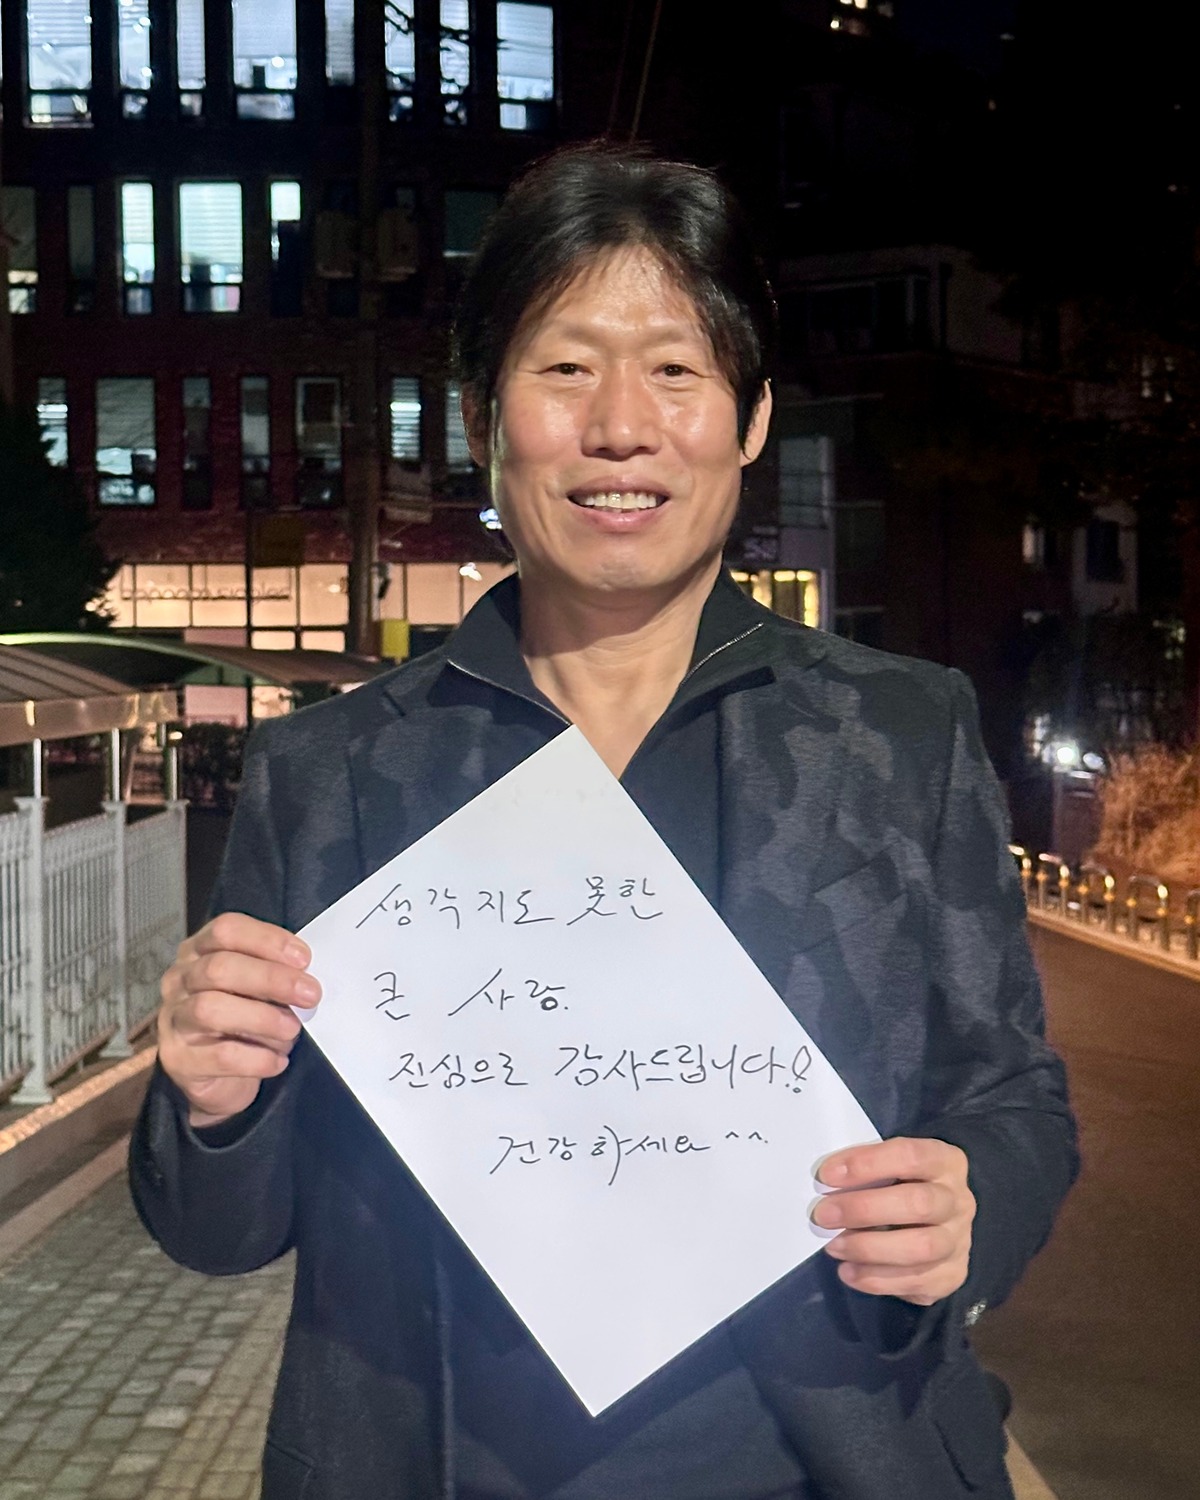 생각지도 못한
큰 사랑.
진심으로 감사드립니다.!
건강하세요 ^^.